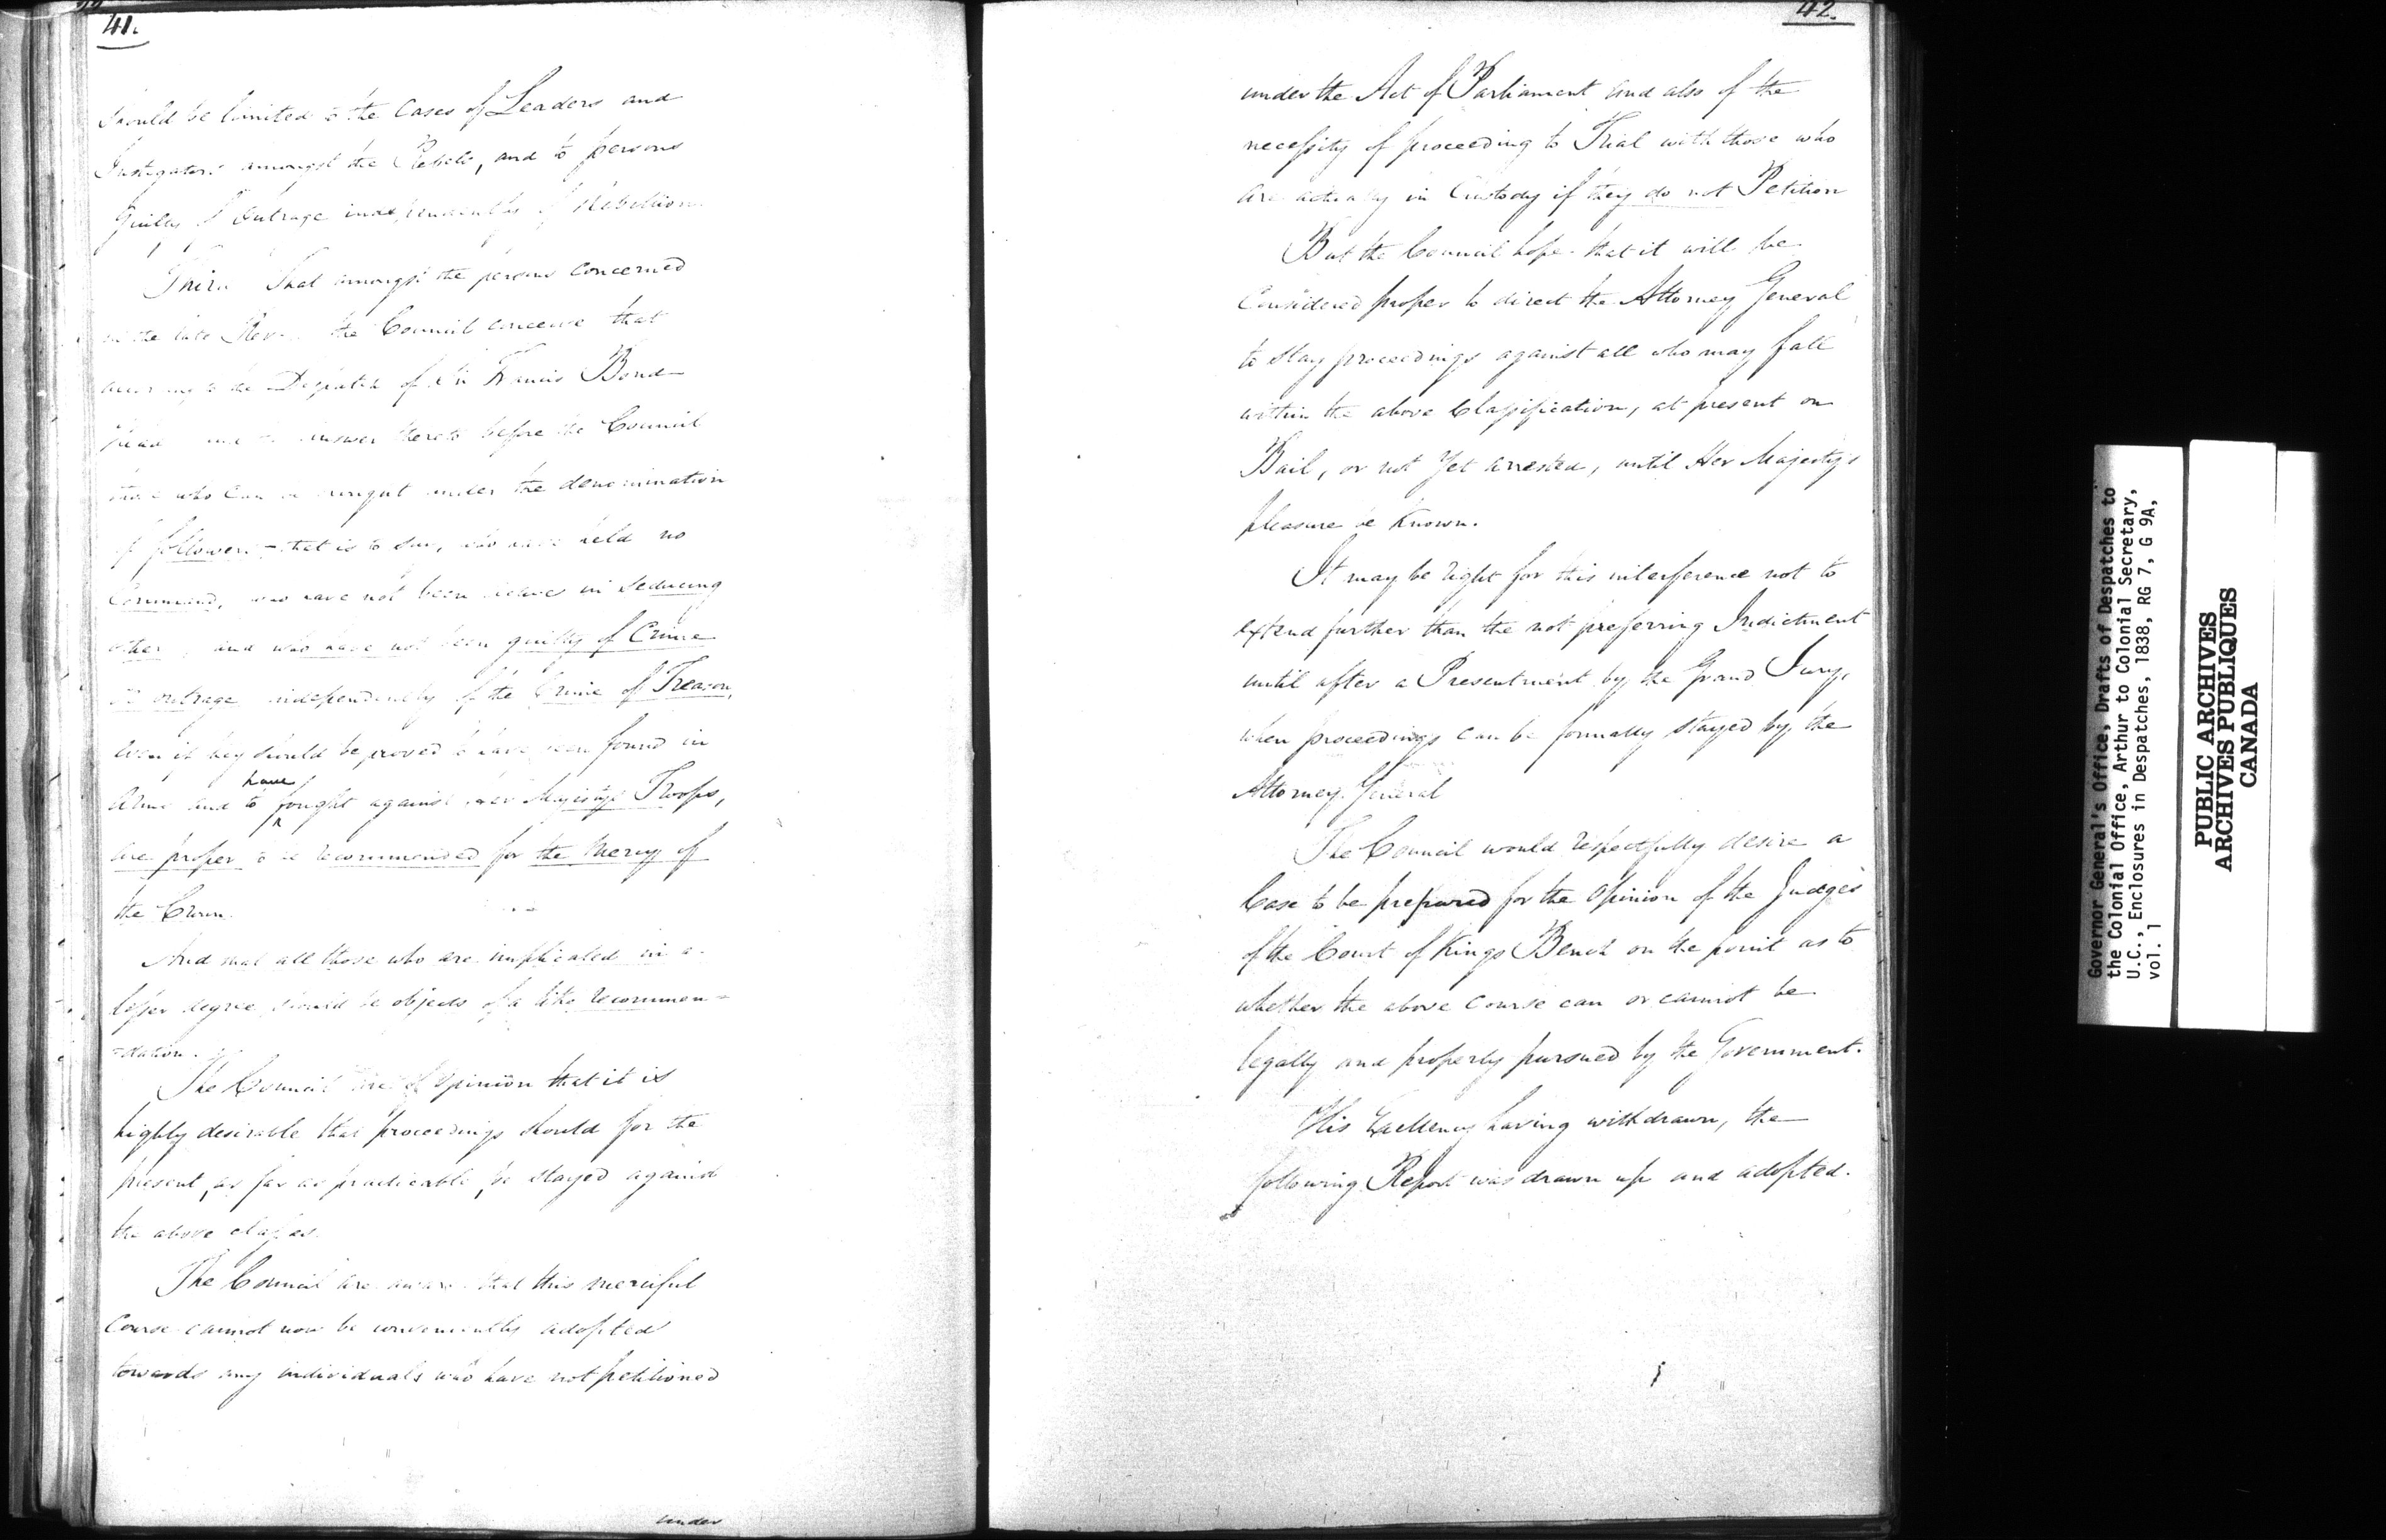 41.
should be limited to the Cases of Leaders and
Instigators amongst the Rebels, and to persons
Guilty of Outrage independently of Rebellion.
Third That amongst the persons concerned
in the late the Council conceive that
according to the Despatch of Sir Francis Bond
Head and the answer thereto before the Council
those who can be brought under the denomination
of followers – that is to say, who have held no
Command, who have not been active in seducing
others, and who have not been guilty of Crime
or outrage independently of the Crime of Treason,
even if they should be proved to have been found in
Arms and to have fought against Her Majestys Troops,
are proper to be recommended for the Mercy of
the Crown.
And that all those who are implicated in a
lesser degree should be objects of a like recommen=
=dation.
The Council are of opinion that it is
highly desirable that proceedings should for the
present, as far as practicable, be stayed against
the above classes.
The Council are aware that this merciful
Course cannot now be conveniently adopted
towards any individuals who have not petitioned
under
42.
under the Act of Parliament and also of the
necessity of proceeding to Trial with those who
are actually in Custody if they do not Petition
But the Council hope that it will be
Considered proper to direct the Attorney General
to stay proceedings against all who may fall
within the above Classification, at present on
Bail, or not yet arrested, until Her Majesty's
pleasure be known.
It may be right for this interference not to
extend further than the not preferring Indictment
until after a Presentment by the Grand Jury,
when proceedings can be formally stayed by the
Attorney General
The Council would respectfully desire a
Case to be prepared for the Opinion of the Judges
of the Court of Kings Bench on the point as to
whether the above Course can or cannot be
legally and properly pursued by the Government.
His Excellency having withdrawn, the
following Report was drawn up and adopted.
Governor General's Office, Drafts of Despatches to
the Colonial Office, Arthur to Colonial Secretary,
U.C., Enclosures in Despatches, 1838, RG 7, G 9A,
vol. 1
PUBLIC ARCHIVES
ARCHIVES PUBLIQUES
CANADA